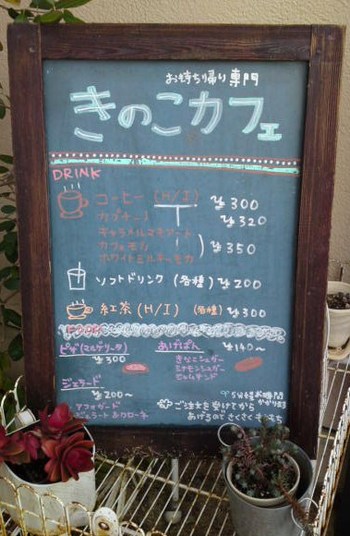 お持ち帰り専門
きのこカフェ
DRINK
コーヒー(H/I) ¥300
カプチーノ ¥320
キャラメルマキアート
カフェモカ ¥350
ホワイトミルキーモカ
ソフトドリンク(各種) ¥200
紅茶(H/I)(各種) ¥300
ピザ(マルゲリータ)
¥300
あげぱん ¥140〜
きなこシュガー
シナモンシュガー
ジェラード
¥200〜
アフォガード
ジェラート&クローネ
ご注文を受けてから
あげるので